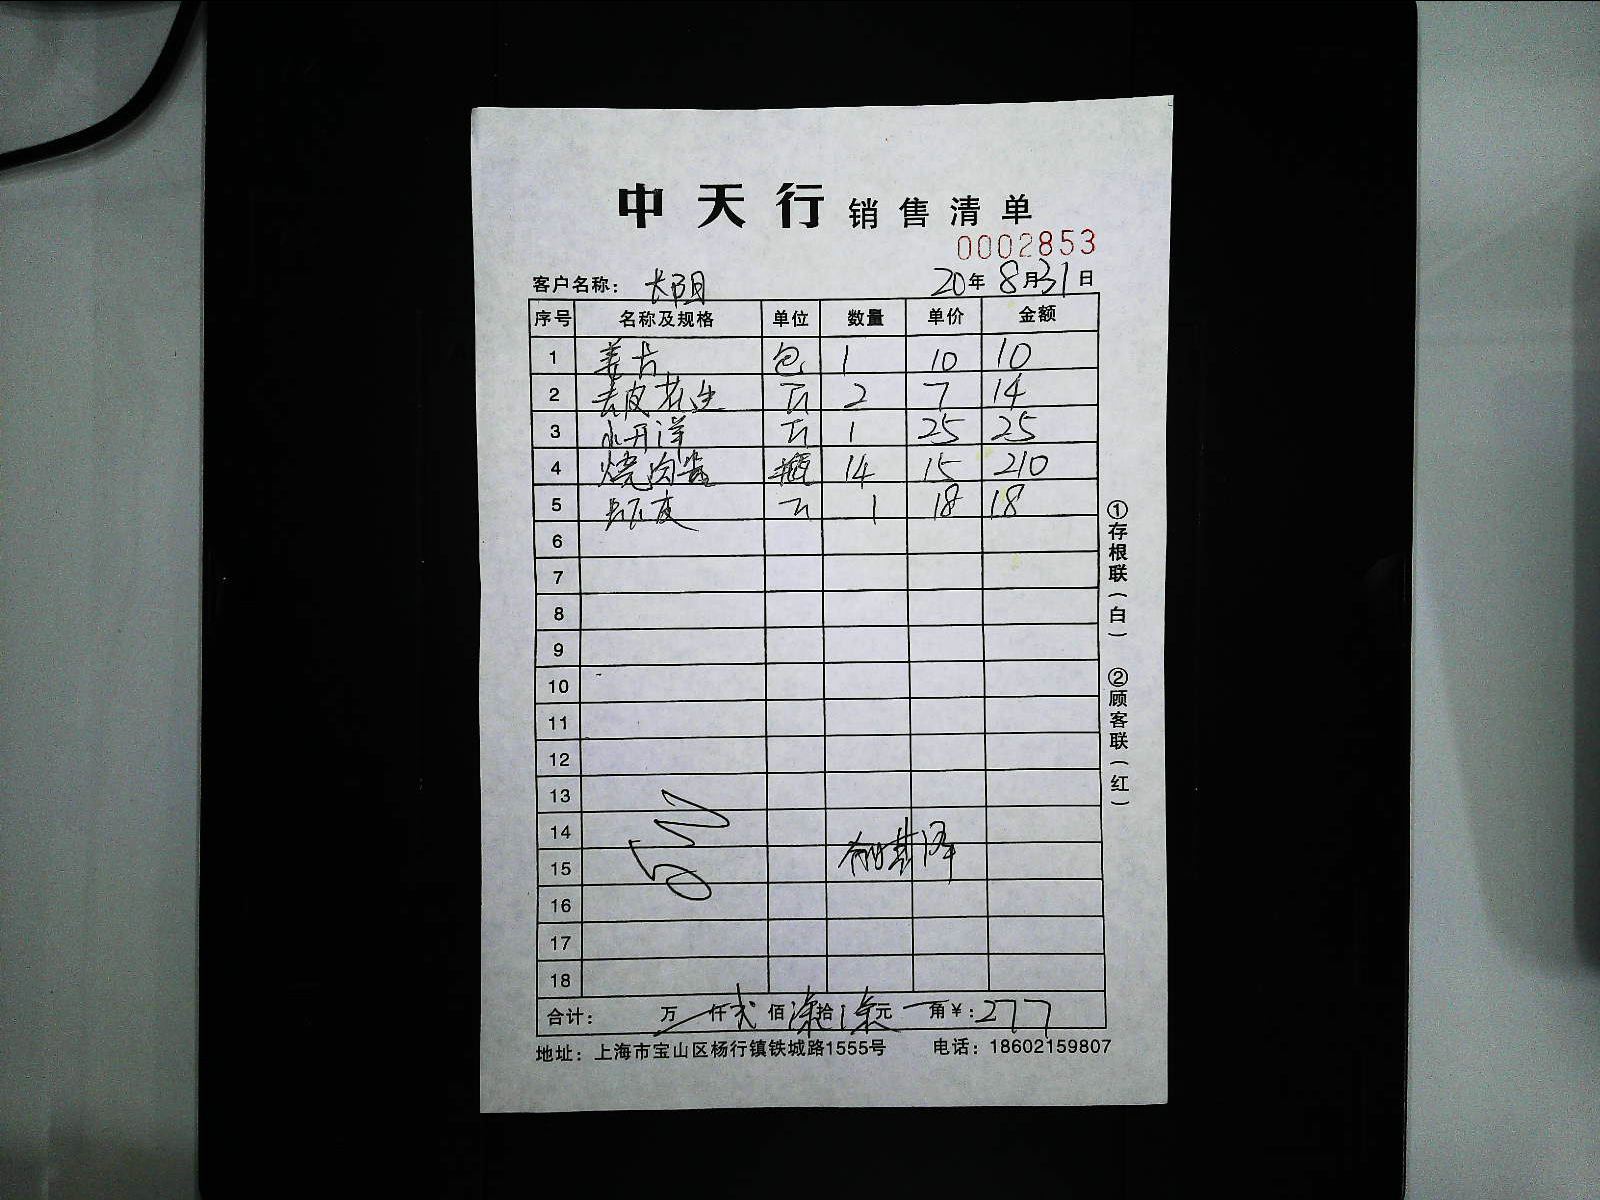 中天行 销售清单
0002853
客户名称: 长阳 20年8月31日
序号 名称及规格 单位 数量 单价 金额
1 姜片 包 1 10 10
2 去皮花生 斤 2 7 14
3 小开洋 斤 1 25 25
4 烧肉酱 瓶 14 15 210
5 斤 1 18 18
6
7
8
9
10
11
12
13
14
15
16
17
18
合计: 万 仟 贰 佰 柒 拾 柒 元 角 ¥: 277
地址: 上海市宝山区杨行镇铁城路1555号 电话: 18602159807
①存根联(白) ②顾客联(红)